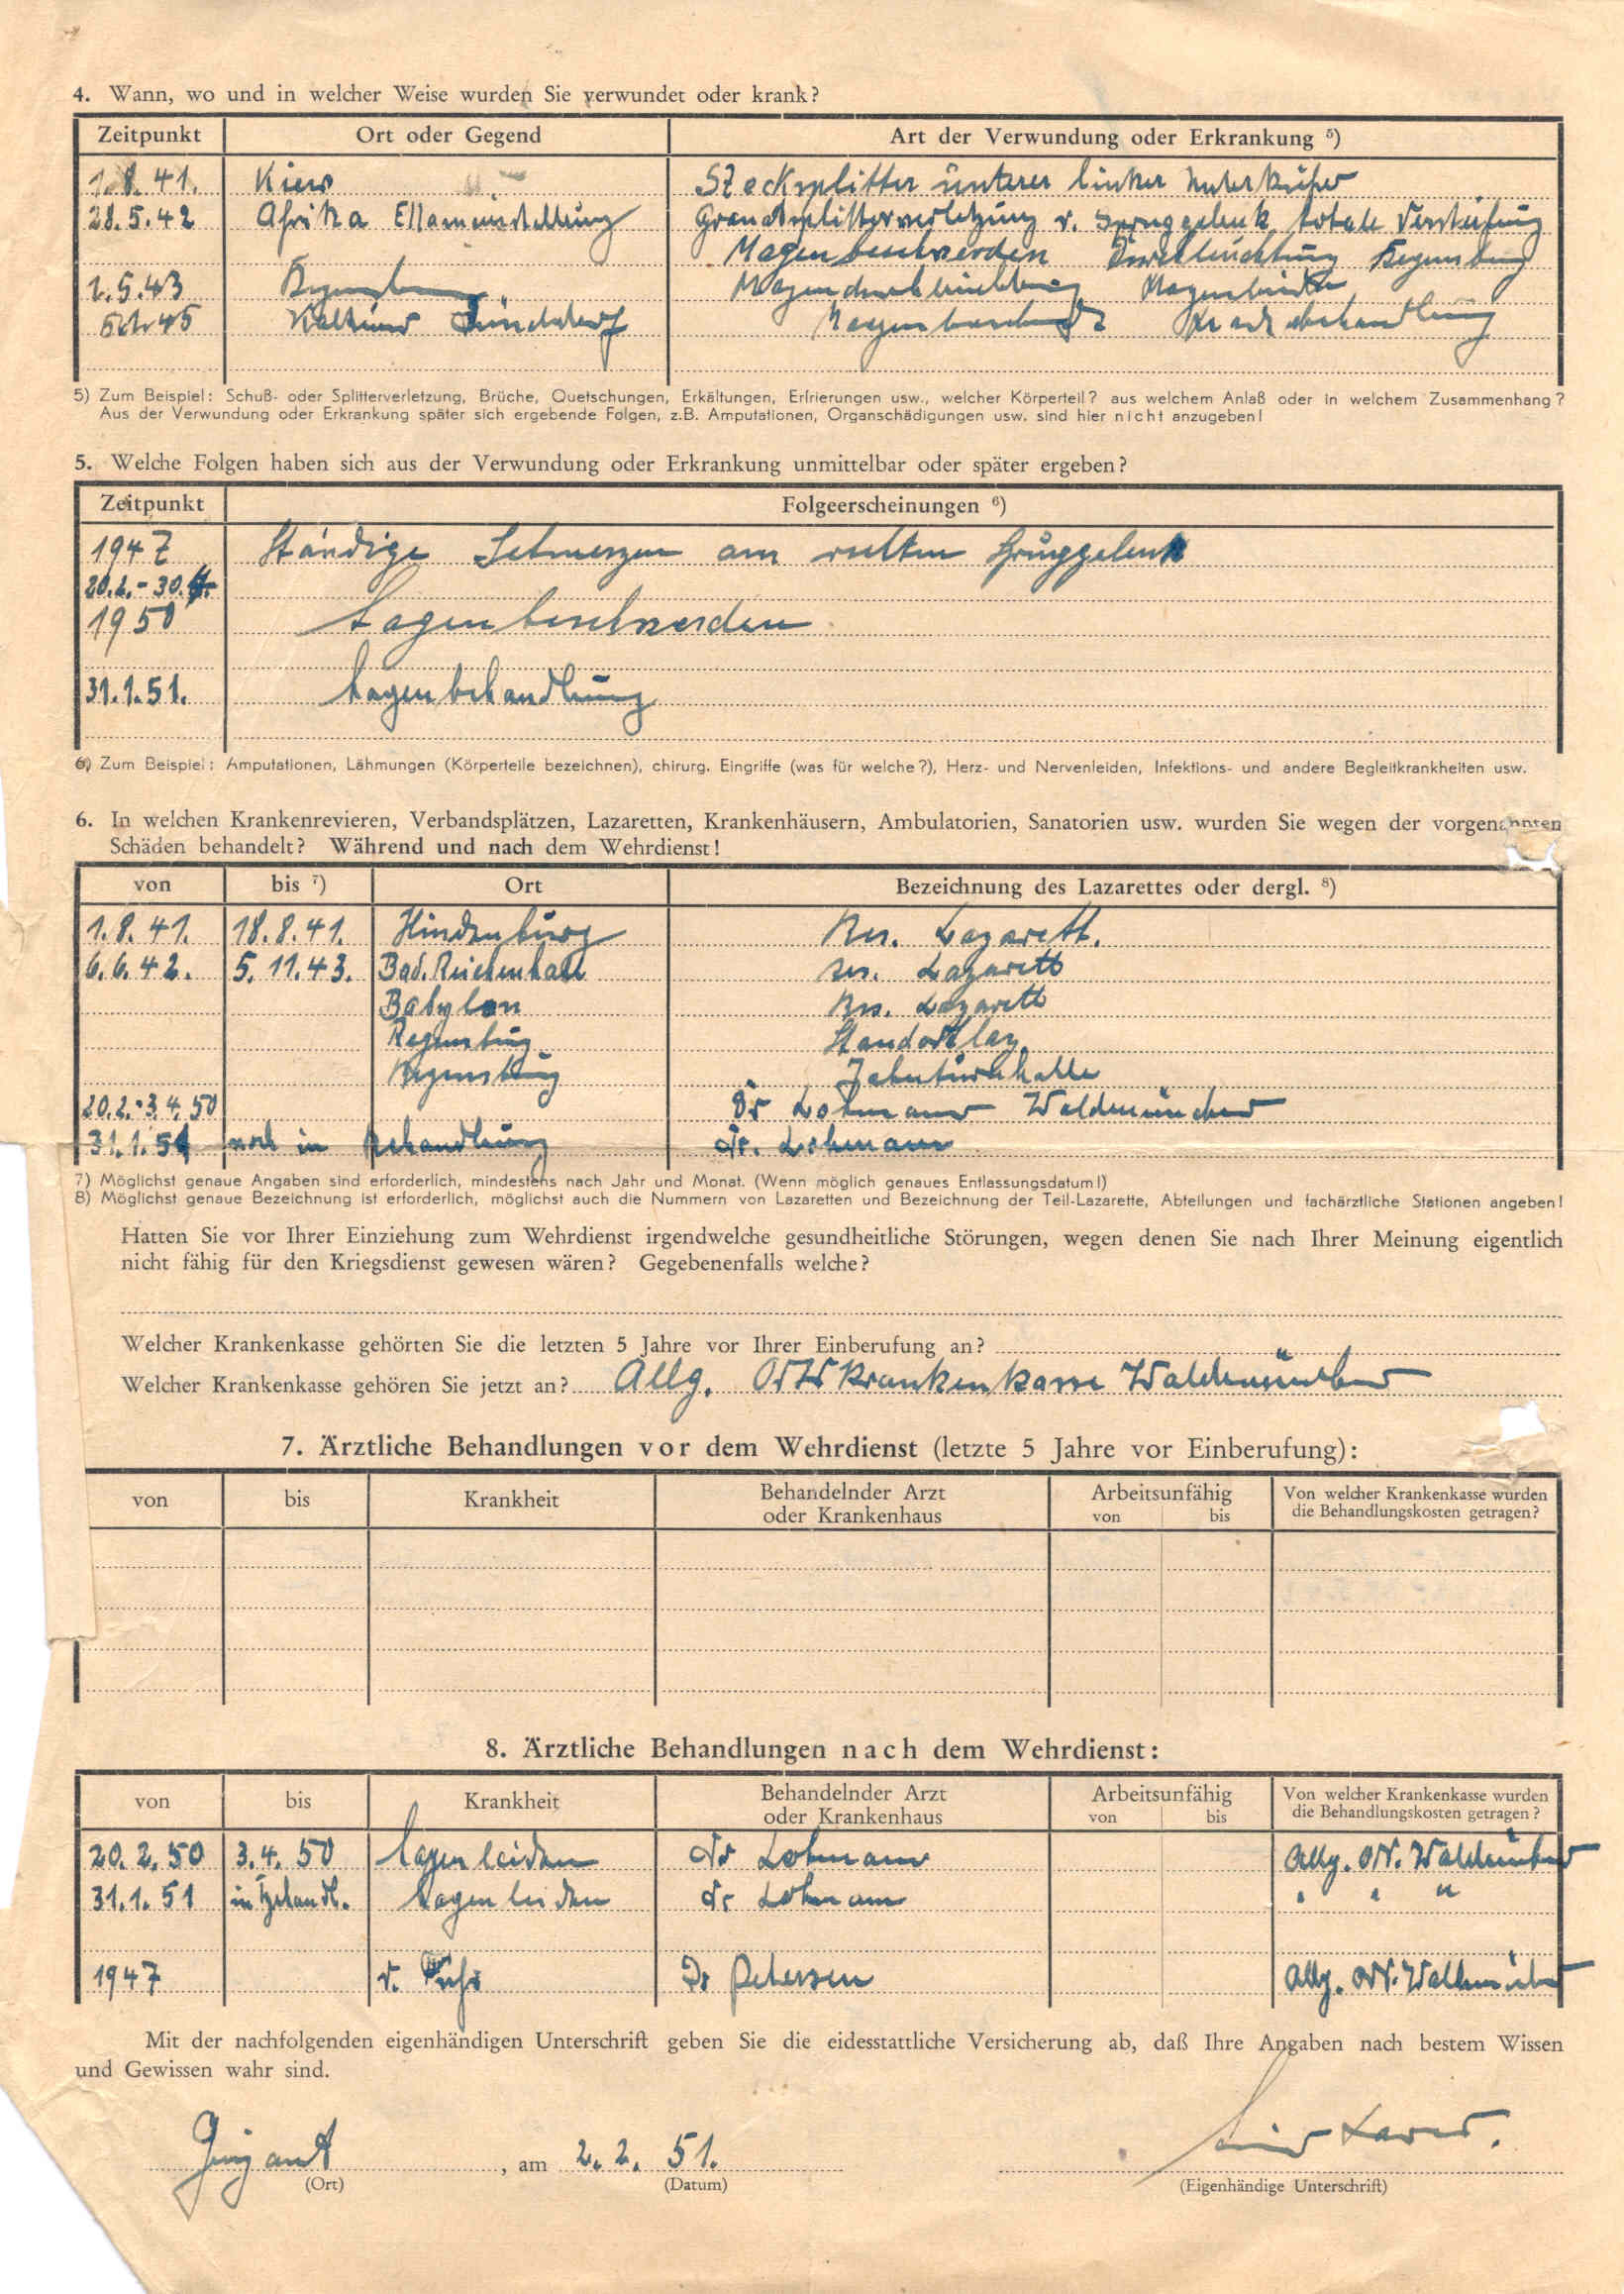 4. Wann, wo und in welcher Weise wurden Sie verwundet oder krank?
Zeitpunkt Ort oder Gegend Art der Verwundung oder Erkrankung ⁵)
1. 8. 41. Kiew Stecksplitter unterer linker
28. 5. 42 Afrika Granatsplitterverletzung r. Sprunggelenk totale Versteifung
Magenbeschwerden Durchleuchtung Regensburg
1. 5. 43 Regensburg Magendurchleuchtung
45
5) Zum Beispiel: Schuß- oder Splitterverletzung, Brüche, Quetschungen, Erkältungen, Erfrierungen usw., welcher Körperteil? aus welchem Anlaß oder in welchem Zusammenhang?
Aus der Verwundung oder Erkrankung später sich ergebende Folgen, z.B. Amputationen, Organschädigungen usw. sind hier nicht anzugeben!
5. Welche Folgen haben sich aus der Verwundung oder Erkrankung unmittelbar oder später ergeben?
Zeitpunkt Folgeerscheinungen ⁶)
1947 Ständige Schmerzen am rechten Sprunggelenk
20.2.-30.4.
1950 Magenbeschwerden
31. 1. 51. Magenbehandlung
6) Zum Beispiel: Amputationen, Lähmungen (Körperteile bezeichnen), chirurg. Eingriffe (was für welche?), Herz- und Nervenleiden, Infektions- und andere Begleitkrankheiten usw.
6. In welchen Krankenrevieren, Verbandsplätzen, Lazaretten, Krankenhäusern, Ambulatorien, Sanatorien usw. wurden Sie wegen der vorgenannten
Schäden behandelt? Während und nach dem Wehrdienst!
von bis ⁷) Ort Bezeichnung des Lazarettes oder dergl. ⁸)
1. 8. 41. 18. 8. 41. Hindenburg Res. Lazarett.
6. 6. 42. 5. 11. 43. Bad. Reichenhall Res. Lazarett
Babylon Res. Lazarett
Regensburg Standortlaz.
Regensburg Jahnturnhalle
20.2.-3.4.50 Dr Lohmann Waldmünchen
31. 1. 51 noch in Behandlung Dr. Lohmann
7) Möglichst genaue Angaben sind erforderlich, mindestens nach Jahr und Monat. (Wenn möglich genaues Entlassungsdatum!)
8) Möglichst genaue Bezeichnung ist erforderlich, möglichst auch die Nummern von Lazaretten und Bezeichnung der Teil-Lazarette, Abteilungen und fachärztliche Stationen angeben!
Hatten Sie vor Ihrer Einziehung zum Wehrdienst irgendwelche gesundheitliche Störungen, wegen denen Sie nach Ihrer Meinung eigentlich
nicht fähig für den Kriegsdienst gewesen wären? Gegebenenfalls welche?
Welcher Krankenkasse gehörten Sie die letzten 5 Jahre vor Ihrer Einberufung an? "
Welcher Krankenkasse gehören Sie jetzt an? Allg. Ortskrankenkasse Waldmünchen
7. Ärztliche Behandlungen vor dem Wehrdienst (letzte 5 Jahre vor Einberufung):
von bis Krankheit Behandelnder Arzt oder Krankenhaus Arbeitsunfähig von bis Von welcher Krankenkasse wurden die Behandlungskosten getragen?
8. Ärztliche Behandlungen nach dem Wehrdienst:
von bis Krankheit Behandelnder Arzt oder Krankenhaus Arbeitsunfähig von bis Von welcher Krankenkasse wurden die Behandlungskosten getragen?
20. 2. 50 3. 4. 50 Magenleiden Dr Lohmann Allg. Waldmünchen
31. 1. 51 in Behandl. Magenleiden Dr Lohmann " " "
1947 Dr Petersen Allg. Waldmünchen
Mit der nachfolgenden eigenhändigen Unterschrift geben Sie die eidesstattliche Versicherung ab, daß Ihre Angaben nach bestem Wissen
und Gewissen wahr sind.
, am 2. 2. 51.
(Ort) (Datum) (Eigenhändige Unterschrift)